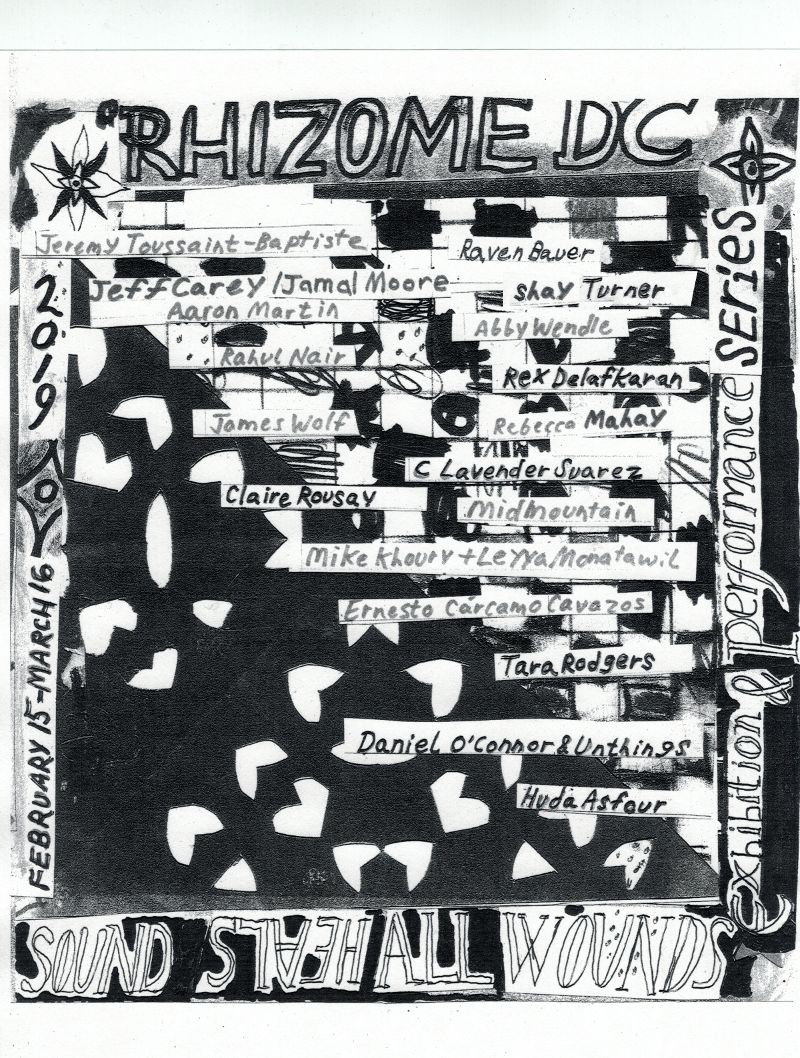 RHIZOME DC
Jeremy Toussaint-Baptiste
Raven Bauer
Jeff Carey / Jamal Moore
Shay Turner
Aaron Martin
Abby Wendle
Rahul Nair
Rex Delafkaran
James Wolf
Rebecca Mahay
C Lavender Suarez
Claire Rousay
Midmountain
Mike Khoury + Leyya Monatawil
Ernesto Cárcamo Cavazos
Tara Rodgers
Daniel O'Connor & Unthings
Huda Asfour
2019
FEBRUARY 15-MARCH 16
Exhibition & Performance SERIES
SOUND HEALS ALL WOUNDS